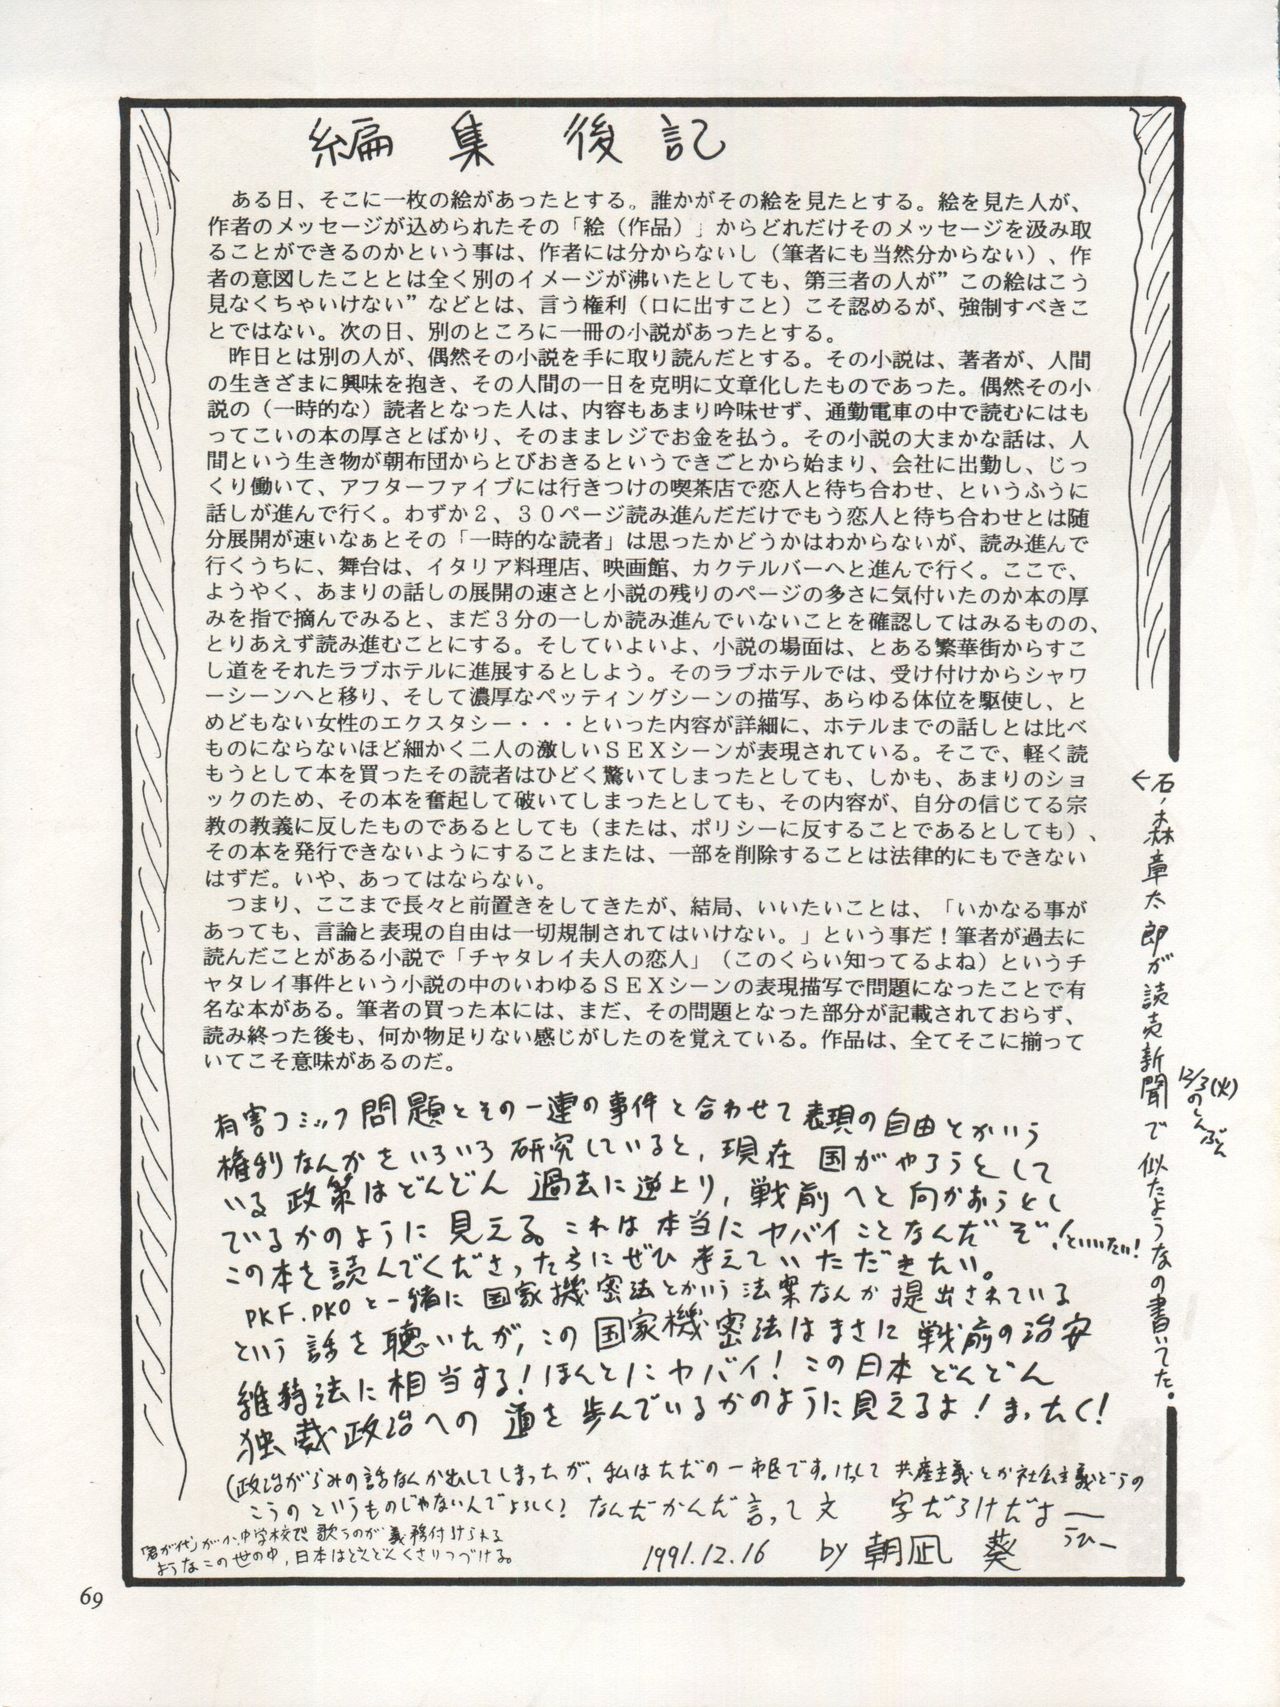 編集後記
　ある日、そこに一枚の絵があったとする。誰かがその絵を見たとする。絵を見た人が、
作者のメッセージが込められたその「絵（作品）」からどれだけそのメッセージを汲み取
ることができるのかという事は、作者には分からないし（筆者にも当然分からない）、作
者の意図したこととは全く別のイメージが沸いたとしても、第三者の人が”この絵はこう
見なくちゃいけない”などとは、言う権利（口に出すこと）こそ認めるが、強制すべきこ
とではない。次の日、別のところに一冊の小説があったとする。
　昨日とは別の人が、偶然その小説を手に取り読んだとする。その小説は、著者が、人間
の生きざまに興味を抱き、その人間の一日を克明に文章化したものであった。偶然その小
説の（一時的な）読者となった人は、内容もあまり吟味せず、通勤電車の中で読むにはも
ってこいの本の厚さとばかり、そのままレジでお金を払う。その小説の大まかな話は、人
間という生き物が朝布団からとびおきるというできごとから始まり、会社に出勤し、じっ
くり働いて、アフターファイブには行きつけの喫茶店で恋人と待ち合わせ、というふうに
話しが進んで行く。わずか２、３０ページ読み進んだだけでもう恋人と待ち合わせとは随
分展開が速いなぁとその「一時的な読者」は思ったかどうかはわからないが、読み進んで
行くうちに、舞台は、イタリア料理店、映画館、カクテルバーへと進んで行く。ここで、
ようやく、あまりの話しの展開の速さと小説の残りのページの多さに気付いたのか本の厚
みを指で摘んでみると、まだ３分の一しか読み進んでいないことを確認してはみるものの、
とりあえず読み進むことにする。そしていよいよ、小説の場面は、とある繁華街からすこ
し道をそれたラブホテルに進展するとしよう。そのラブホテルでは、受け付けからシャワ
ーシーンへと移り、そして濃厚なペッティングシーンの描写、あらゆる体位を駆使し、と
めどもない女性のエクスタシー・・・といった内容が詳細に、ホテルまでの話しとは比べ
ものにならないほど細かく二人の激しいＳＥＸシーンが表現されている。そこで、軽く読
もうとして本を買ったその読者はひどく驚いてしまったとしても、しかも、あまりのショ
ックのため、その本を奮起して破いてしまったとしても、その内容が、自分の信じてる宗
教の教義に反したものであるとしても（または、ポリシーに反することであるとしても）、
その本を発行できないようにすることまたは、一部を削除することは法律的にもできない
はずだ。いや、あってはならない。
　つまり、ここまで長々と前置きをしてきたが、結局、いいたいことは、「いかなる事が
あっても、言論と表現の自由は一切規制されてはいけない。」という事だ！筆者が過去に
読んだことがある小説で「チャタレイ夫人の恋人」（このくらい知ってるよね）というチ
ャタレイ事件という小説の中のいわゆるＳＥＸシーンの表現描写で問題になったことで有
名な本がある。筆者の買った本には、まだ、その問題となった部分が記載されておらず、
読み終った後も、何か物足りない感じがしたのを覚えている。作品は、全てそこに揃って
いてこそ意味があるのだ。
有害コミック問題とその一連の事件と合わせて表現の自由とかいう
権利なんかをいろいろ研究していると、現在国がやろうとして
いる政策はどんどん過去に逆上り、戦前へと向かおうとし
ているかのように見える。これは本当にヤバイことなんだぞ！といいたい！
この本を読んでくださった方にぜひ考えていただきたい。
PKF.PKOと一緒に国家機密法とかいう法案なんか提出されている
という話を聴いたが、この国家機密法はまさに戦前の治安
維持法に相当する！ほんとにヤバイ！この日本どんどん
独裁政治への道を歩んでいるかのように見えるよ！まったく！
（政治がらみの話なんか出してしまったが、私はただの一市民です。けっして共産主義とか社会主義どうの
こうのというものじゃないんでよろしく！なんだかんだ言って文　字だらけだよー
うひー
「君が代」がか、中学校で歌うのが義務付けられる
ようなこの世の中、日本はどんどんくさりつづける。
1991.12.16　by 朝凪　葵
←石ノ森章太郎が読売新聞で似たようなの書いてた。
12/3（火）
のしんぶん
69